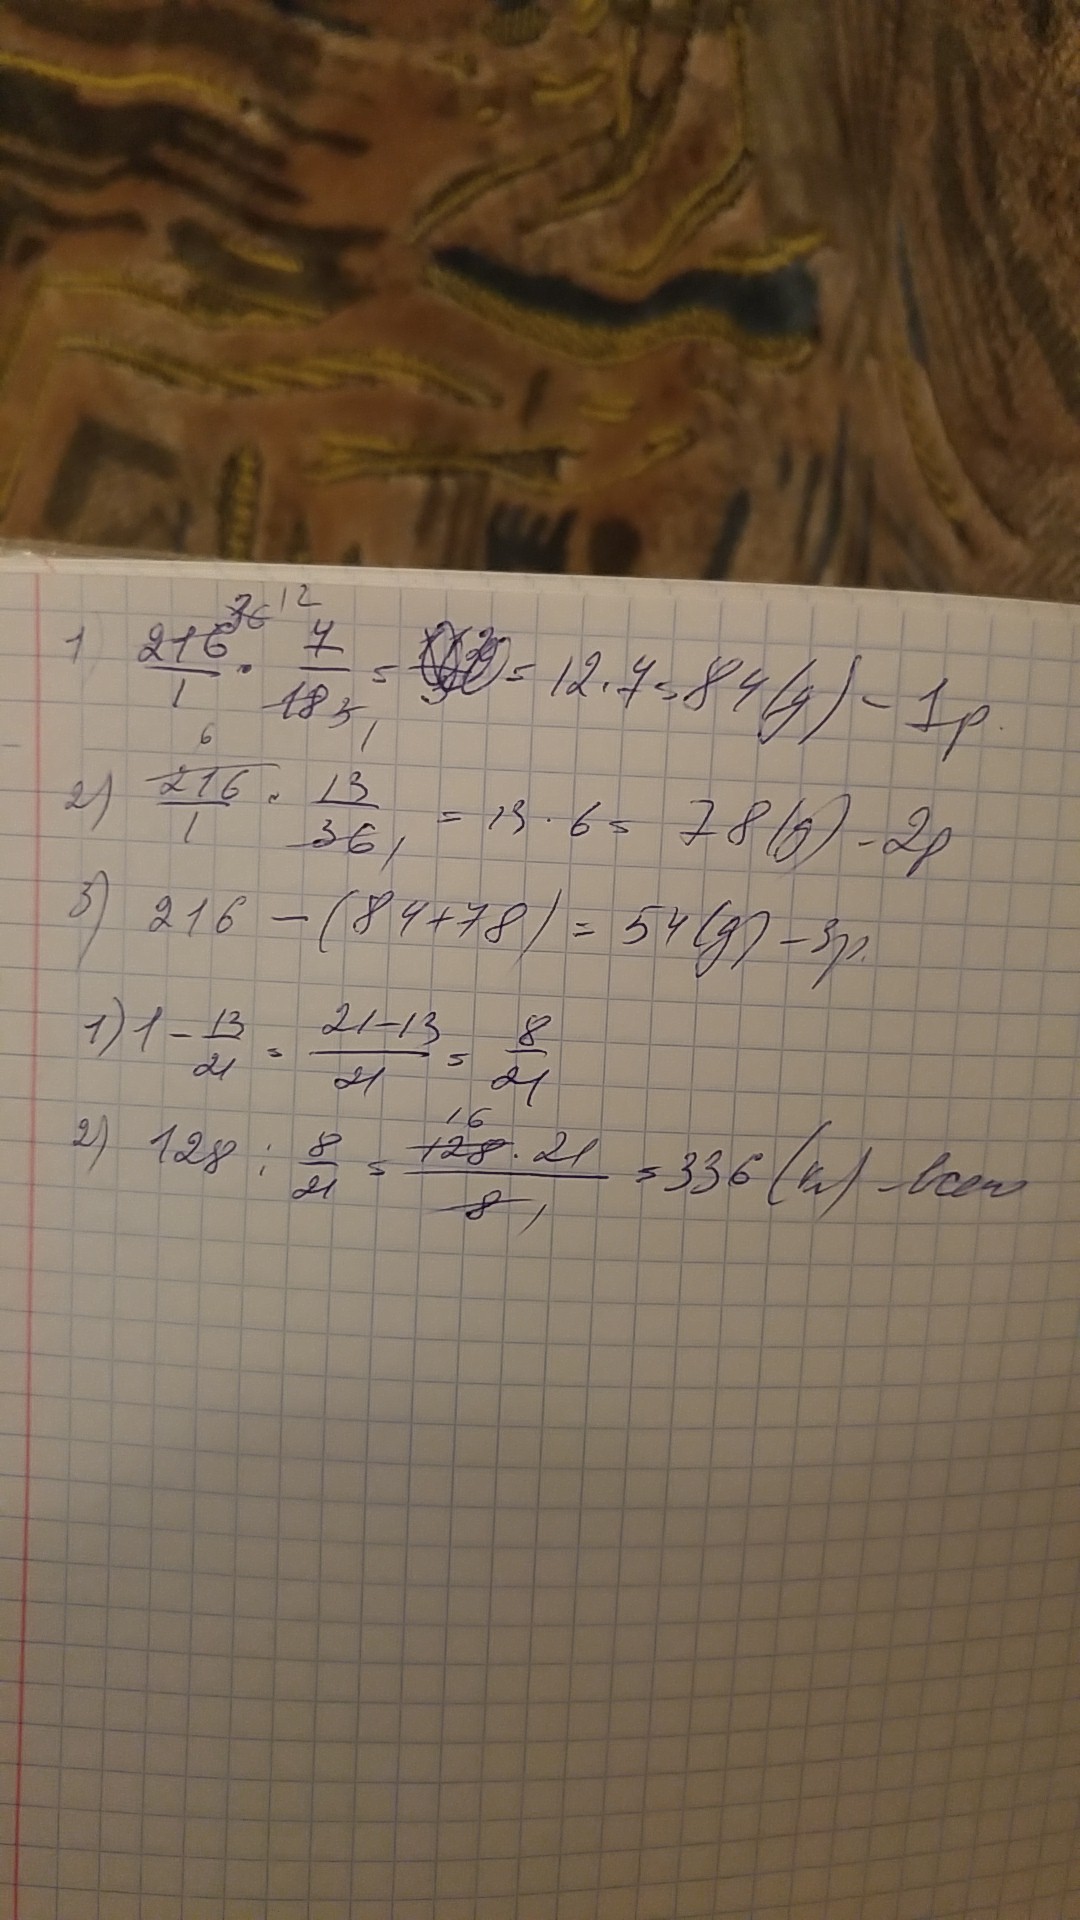 1) 216/1 36 12 · 7/18 3 1 = = 12·7=84(д) – 1р.
2) 216/1 6 · 13/36 1 = 13·6= 78(д) – 2р
3) 216 – (84+78) = 54(д) – 3р.
1) 1 – 13/21 = 21–13/21 = 8/21
2) 128 : 8/21 = 128 16 · 21/8 1 = 336 (к) – всего